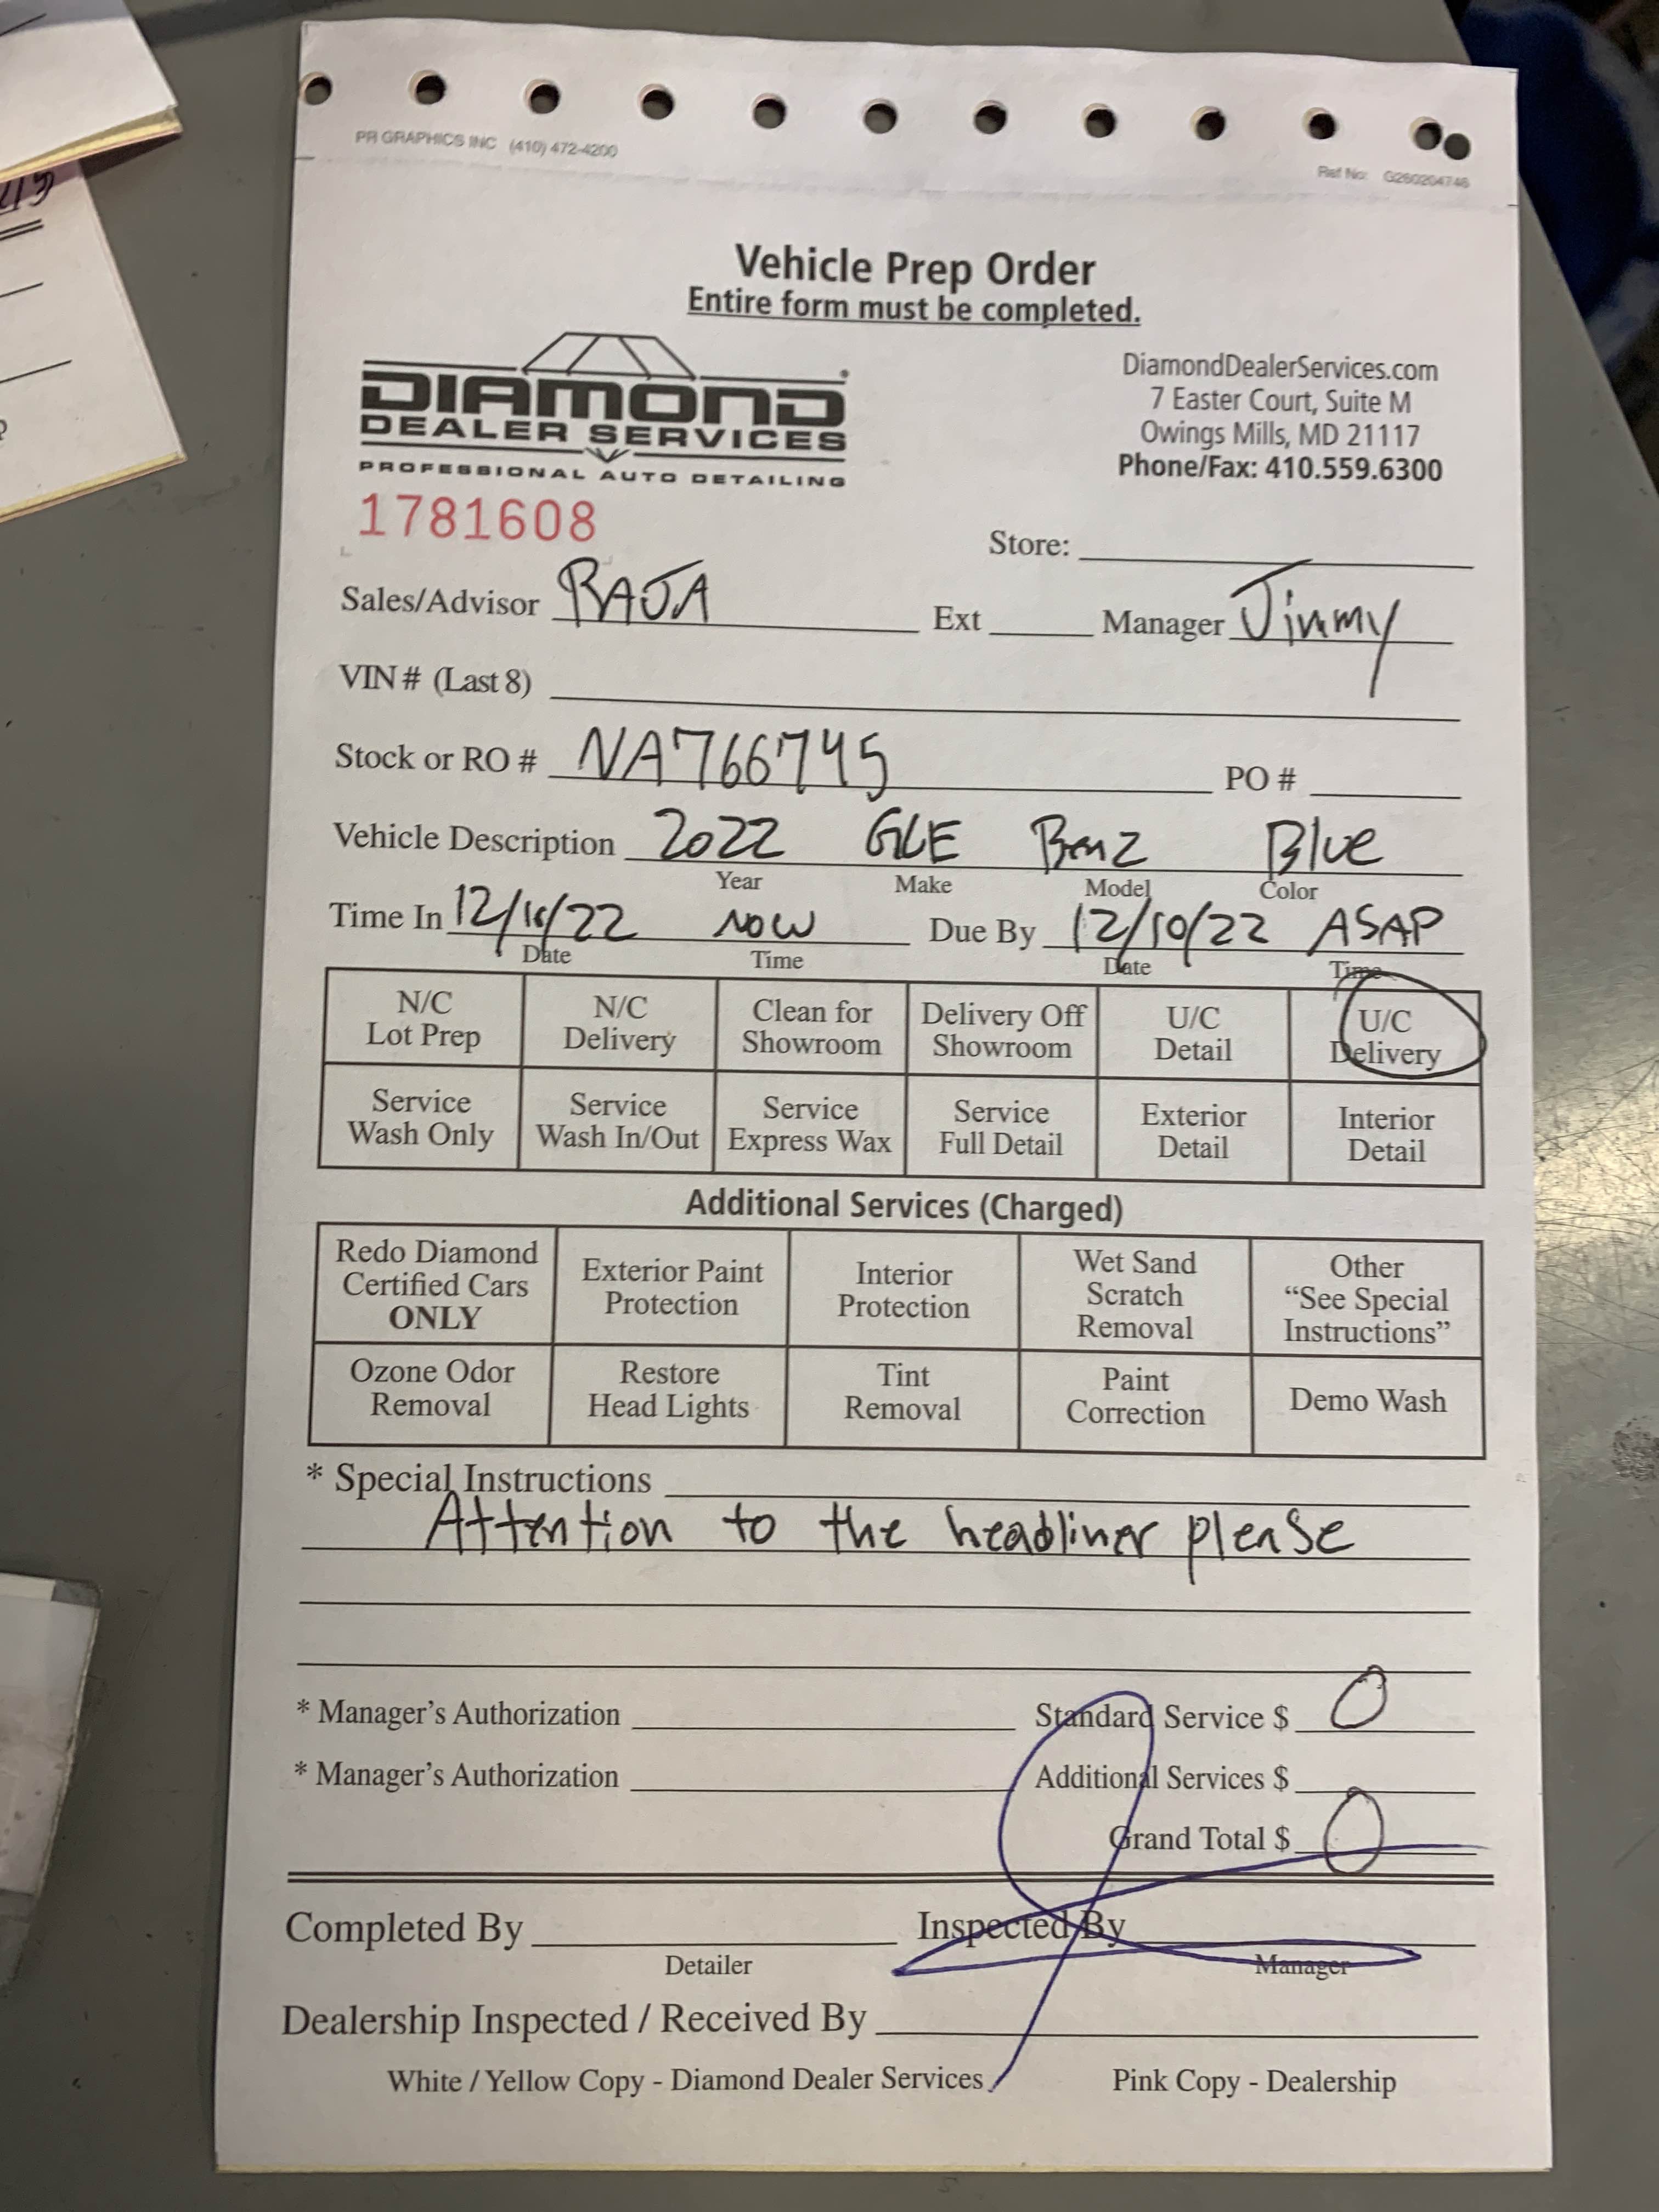 PR GRAPHICS INC (410) 472-4200
Ref No: G260204746
Vehicle Prep Order
Entire form must be completed.
DIAMOND
DEALER SERVICES
PROFESSIONAL AUTO DETAILING
DiamondDealerServices.com
7 Easter Court, Suite M
Owings Mills, MD 21117
Phone/Fax: 410.559.6300
1781608
Store:
Sales/Advisor RAJA Ext Manager Jimmy
VIN # (Last 8)
Stock or RO # NA766745 PO #
Vehicle Description 2022 GLE Benz Blue
Year Make Model Color
Time In 12/ /22 NOW Due By 12/10/22 ASAP
Date Time Date Time
N/C Lot Prep
N/C Delivery
Clean for Showroom
Delivery Off Showroom
U/C Detail
U/C Delivery
Service Wash Only
Service Wash In/Out
Service Express Wax
Service Full Detail
Exterior Detail
Interior Detail
Additional Services (Charged)
Redo Diamond Certified Cars ONLY
Exterior Paint Protection
Interior Protection
Wet Sand Scratch Removal
Other "See Special Instructions"
Ozone Odor Removal
Restore Head Lights
Tint Removal
Paint Correction
Demo Wash
* Special Instructions
Attention to the headliner please
* Manager's Authorization Standard Service $ 0
* Manager's Authorization Additional Services $
Grand Total $ 0
Completed By Inspected By
Detailer Manager
Dealership Inspected / Received By
White / Yellow Copy - Diamond Dealer Services Pink Copy - Dealership